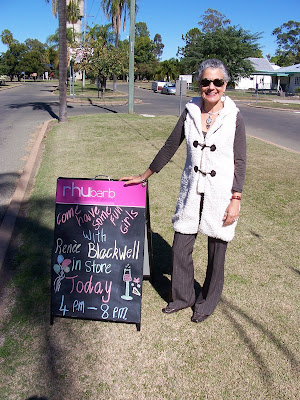 rhubarb
Come have some fun
Girls
with
Renée Blackwell
in store
Today
4 PM - 8 PM